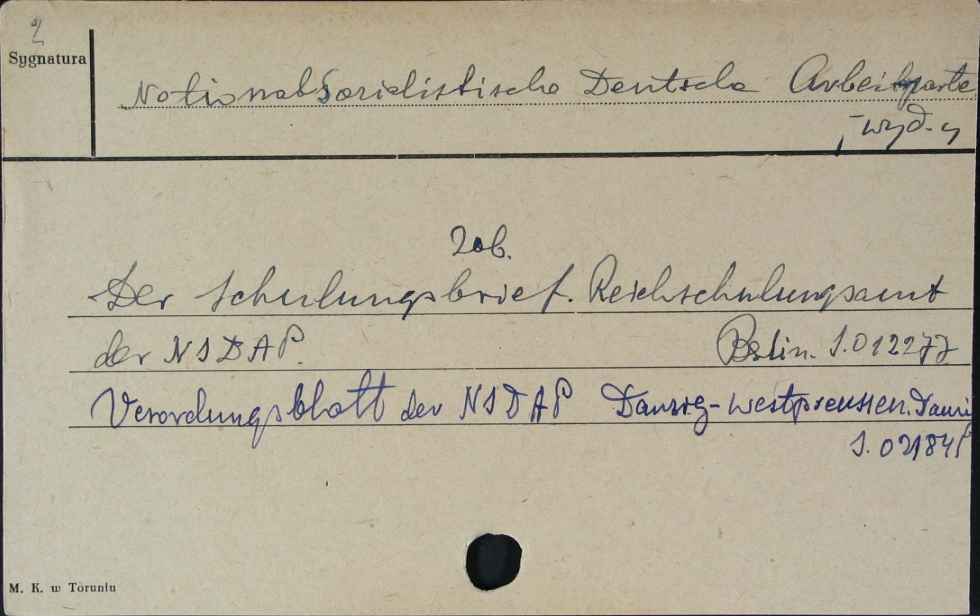 2
Sygnatura
Nationalsozialistische Deutsche Arbeitparte
, wyd-y
Zob.
Der Schulungsbrief. Reichschulungsamt
der NSDAP. Berlin. S.012277
Verordungsblatt der NSDAP Danzig-Westpreussen. Danzig
S.021845
M. K. w Toruniu